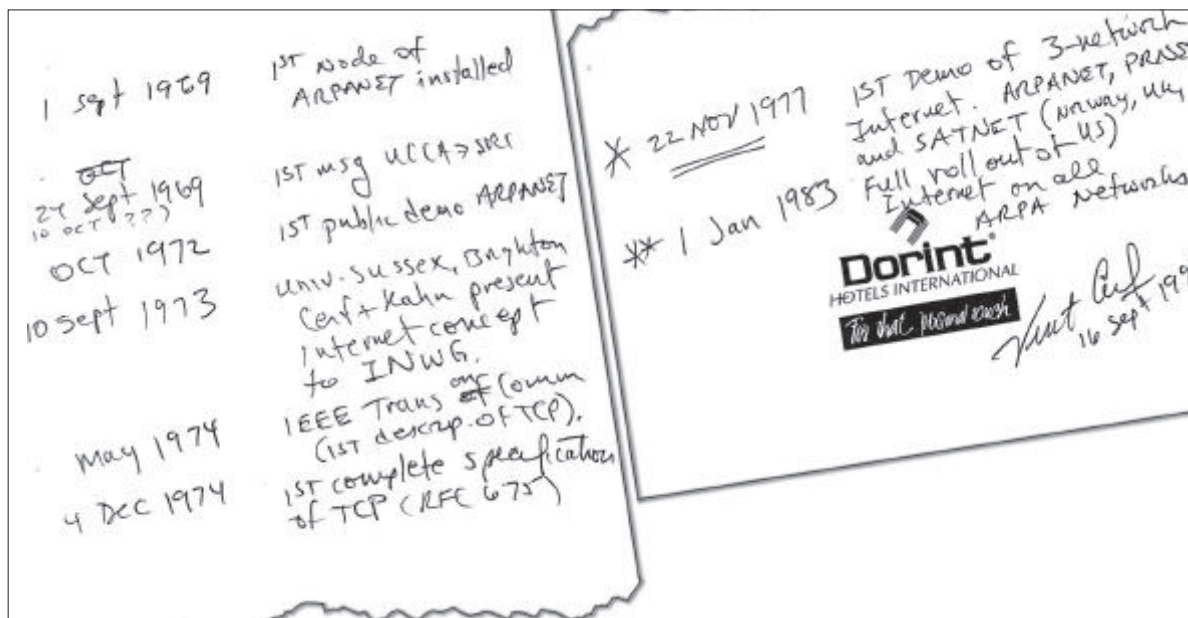 1 Sept 1969 1ST Node of
ARPANET installed
OCT
Sept 1969 1ST msg UCLA > SRI
10 OCT ??)
OCT 1972 1ST public demo ARPANET
10 Sept 1973 Univ. Sussex, Brighton
Cerf + Kahn present
Internet concept
to INWG.
May 1974 IEEE Trans on Comm
(1ST descrip. of TCP).
4 DEC 1974 1ST complete specification
of TCP (RFC 675)
* 22 NOV 1977 1ST Demo of 3-network
Internet. ARPANET, PRNE
and SATNET (Norway, UK,
US)
** 1 Jan 1983 Full roll out of
Internet on all
ARPA Networks
Dorint
HOTELS INTERNATIONAL
Vint Cerf
16 Sept 199